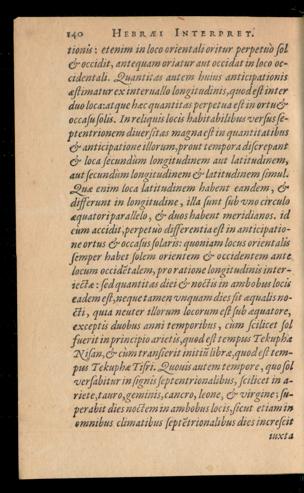 140 HEBRÆI INTERPRET.
tionis: etenim in loco orientali oritur perpetuò sol
& occidit, antequam oriatur aut occidat in loco oc-
cidentali. Quantitas autem huius anticipationis
æstimatur ex interuallo longitudinis, quod est inter
duo loca: atque hæc quantitas perpetua est in ortu &
occasu solis. In reliquis locis habitabilibus versus se-
ptentrionem diuersitas magna est in quantitatibus
& anticipatione illorum, prout tempora discrepant
& loca secundùm longitudinem aut latitudinem,
aut secundùm longitudinem & latitudinem simul.
Quæ enim loca latitudinem habent eandem, &
differunt in longitudine, illa sunt sub vno circulo
æquatori parallelo, & duos habent meridianos. id
cùm accidit, perpetuò differentia est in anticipatio-
ne ortus & occasus solaris: quoniam locus orientalis
semper habet solem orientem & occidentem ante
locum occidētalem, pro ratione longitudinis inter-
iectæ: sed quantitas diei & noctis in ambobus locis
eadem est, neque tamen vnquam dies sit æqualis no-
cti, quia neuter illorum locorum est sub æquatore,
exceptis duobus anni temporibus, cùm scilicet sol
fuerit in principio arietis, quod est tempus Tekuphæ
Nisan, & cùm transierit initiũ libræ, quod est tem-
pus Tekuphæ Tisri. Quouis autem tempore, quo sol
versabitur in signis septentrionalibus, scilicet in a-
riete, tauro, geminis, cancro, leone, & virgine; su-
perabit dies noctem in ambobus locis, sicut etiam in
omnibus climatibus septētrionalibus dies increscit
iuxta